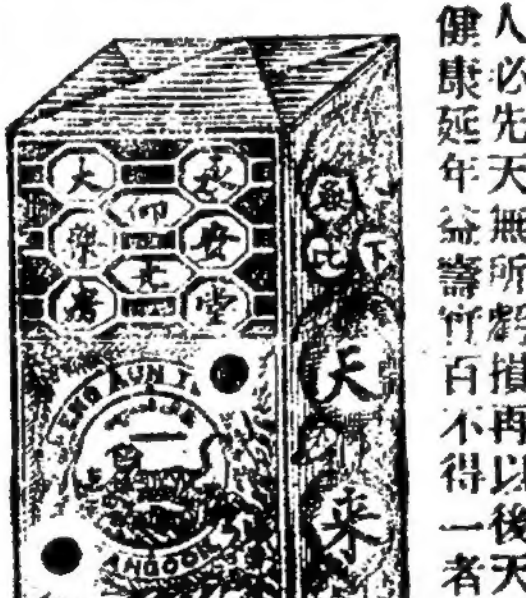 人必先天無所虧損再以後天
健康延年益壽 百不得一者
永安堂
仰光
大藥房
比下
天
來
ENG AUN T
ANGOON